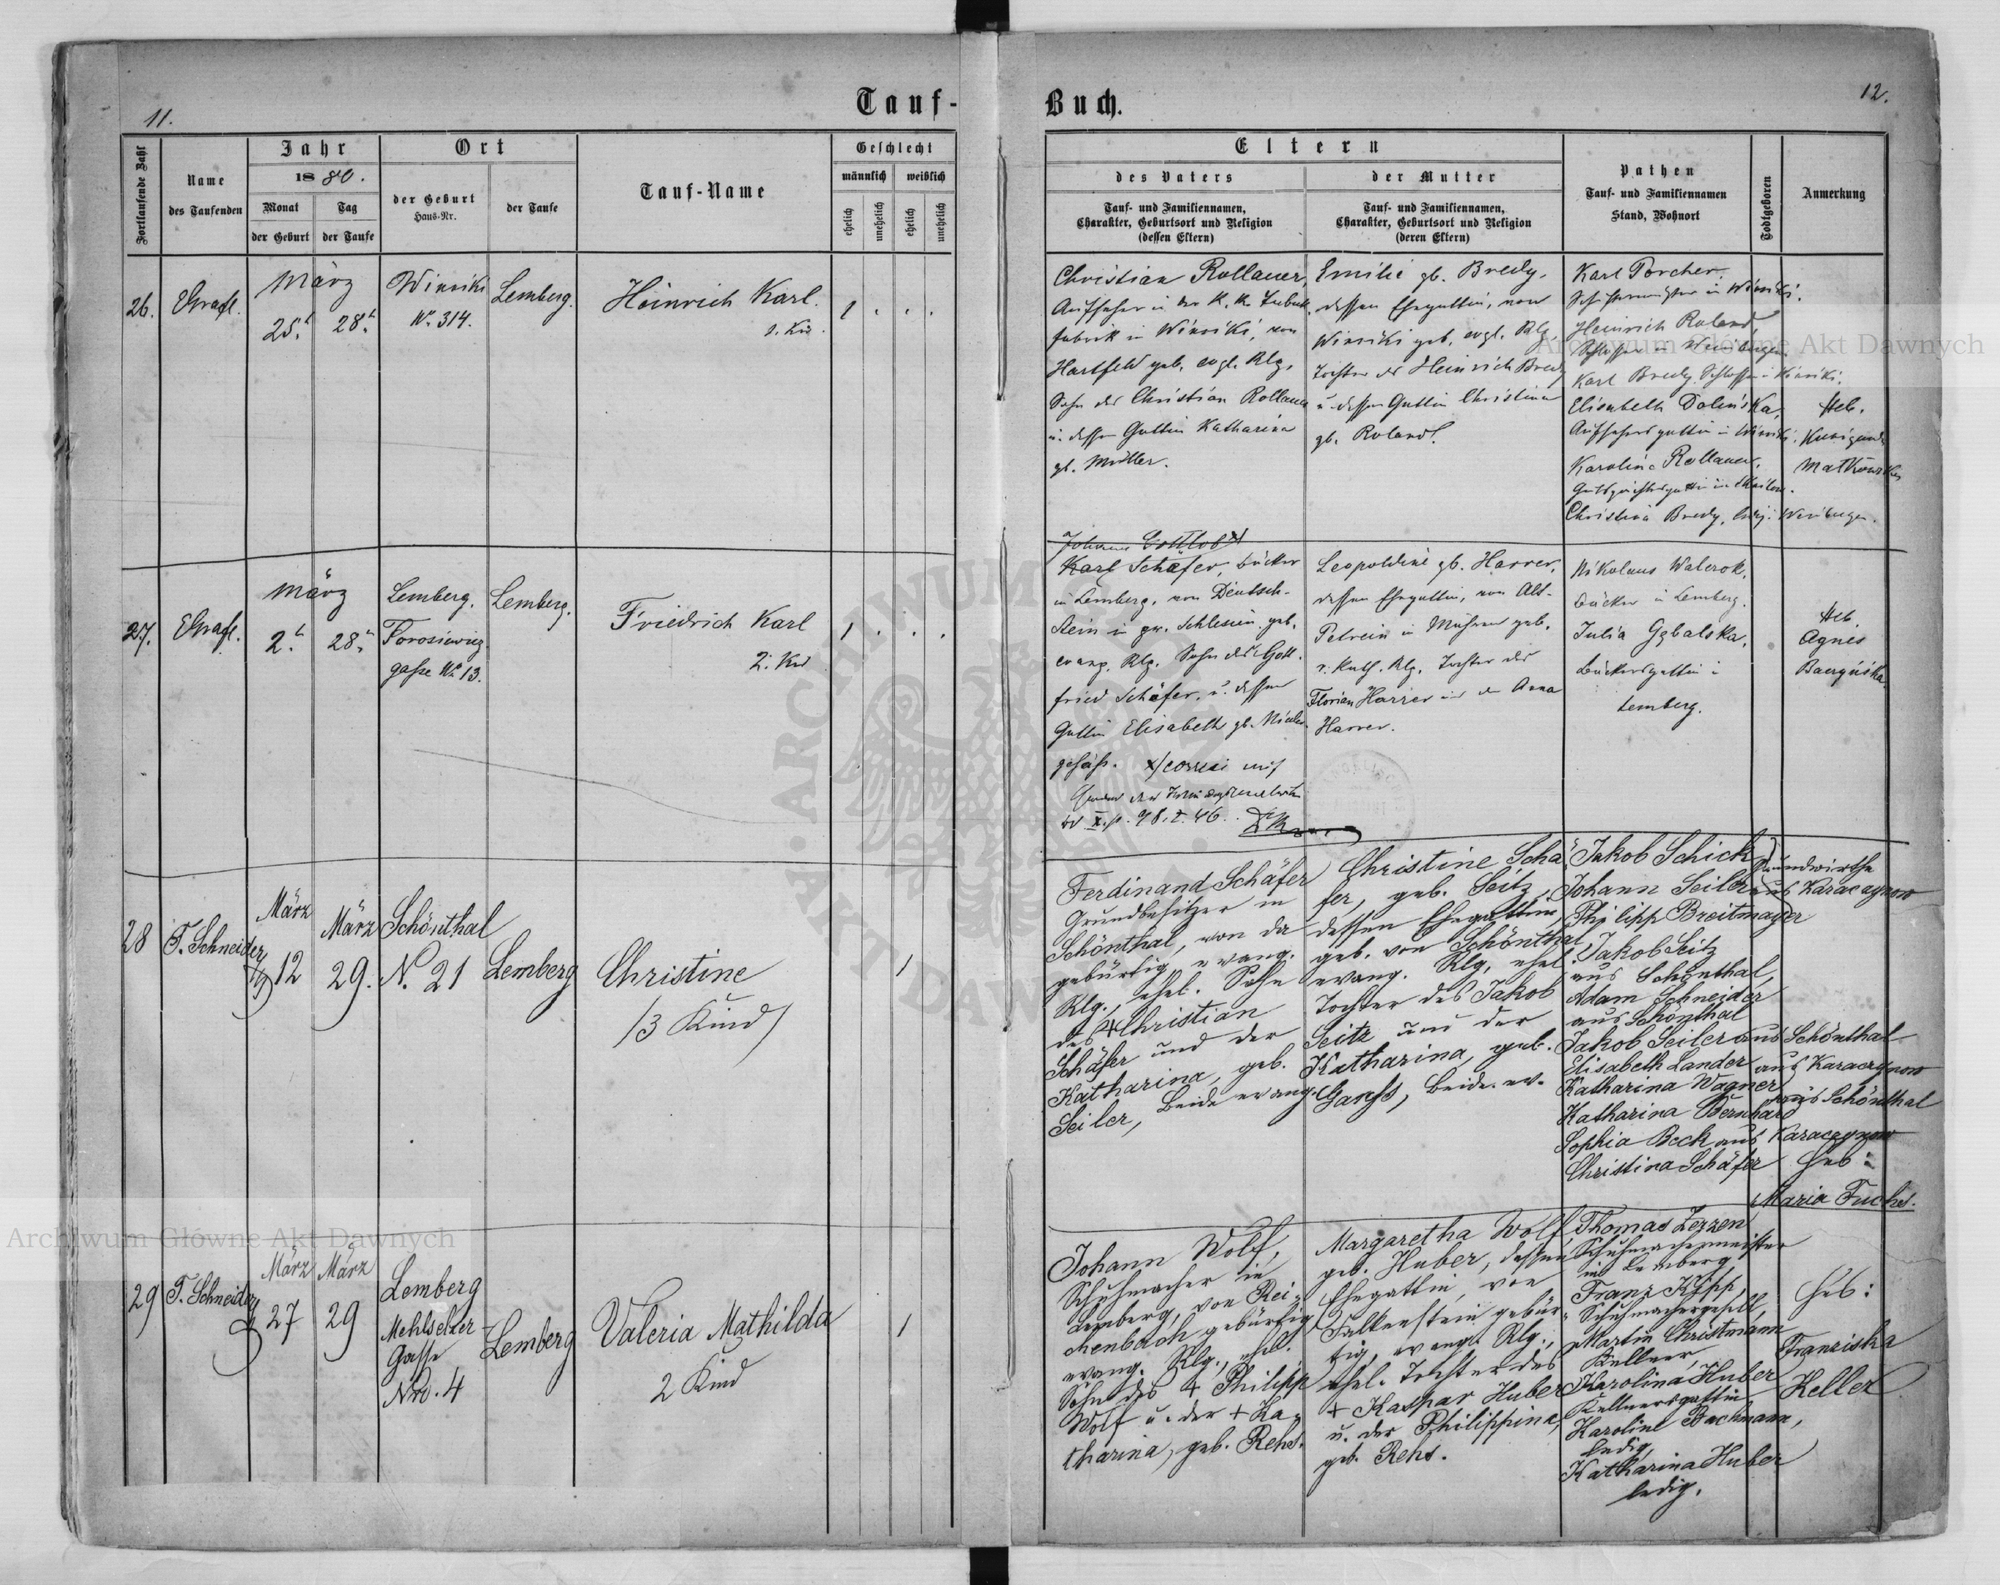 11.
Tauf-
Buch.
12.
Fortlaufende Zahl
Name
des Taufenden
Jahr
1880.
Monat
Tag
der Geburt
der Taufe
Ort
der Geburt
Haus-Nr.
der Taufe
Tauf-Name
Geschlecht
männlich
weiblich
ehelich
unehelich
ehelich
unehelich
Eltern
des Vaters
Tauf- und Familiennamen,
Charakter, Geburtsort und Religion
(dessen Eltern)
der Mutter
Tauf- und Familiennamen,
Charakter, Geburtsort und Religion
(deren Eltern)
Pathen
Tauf- und Familiennamen
Stand, Wohnort
Todtgeboren
Anmerkung
26.
Grafl.
März
25.
28.
Winniki
No 314.
Lemberg.
Heinrich Karl.
1. Kind.
1
Christian Rollauer,
Aufseher in der K. K. Tabak
fabrik in Winniki, von
Hartfeld geb. evgl. Rlg.
Sohn des Christian Rollauer
u. dessen Gattin Katharina
gb. Müller.
Emilie gb. Bredy,
dessen Ehegattin, von
Winniki geb. evgl. Rlg.
Tochter des Heinrich Bredy
u. dessen Gattin Christina
gb. Roland.
Karl Porcher,
in Winniki.
Heinrich Roland,
Schlosser in Weinbergen.
Karl Bredy Schlosser in Winniki.
Elisabeth Dolińska,
Aufsehersgattin in Winniki,
Karolina Rollauer,
Christina Bredy, Weinbergen.
Heb.
Kunigunde
Matkowska
27.
Grafl.
März
2.
28.
Lemberg.
gasse No 13.
Lemberg.
Friedrich Karl
2. Kind
1
Johann Gottlob x/
Karl Schäfer, Bäcker
in Lemberg, von Deutsch-
Stein in pr. Schlesien geb.
evang. Rlg. Sohn des Gott-
fried Schäfer, u. dessen
Gattin Elisabeth gb.
x/
Leopoldine gb. Harrer,
dessen Ehegattin, von Alt-
Petrein in Mähren geb.
r. kath. Rlg. Tochter des
Florian Harrer und der Anna
Harrer.
Nikolaus Walczok,
Bäcker in Lemberg.
Julia
Bäckersgattin in
Lemberg.
Heb.
Agnes
28
F. Schneider
März
12
März
29.
Schönthal
N. 21
Lemberg
Christine
/3 Kind/
1
Ferdinand Schäfer
Grundbesitzer in
Schönthal, von da
gebürtig evang.
Rlg., ehel. Sohn
des + Christian
Schäfer und der
Katharina, geb.
Seiler, Beide evang.
Christine Schä-
fer, geb. Seitz,
dessen Ehegattin
geb. von Schönthal,
evang. Rlg, ehel.
Tochter des Jakob
Seitz und der
Katharina, geb.
Beide ev.
Jakob Schick
Johann Seiler
Philipp Breitmayer
Grundwirthe
aus Karaczynow
Jakob Seitz
aus Schönthal,
Adam Schneider
aus Schönthal
Jakob Seiler aus Schönthal
Elisabeth Lander aus Karaczynow
Katharina Wagner
Katharina Bernhard
aus Schönthal
Sophia Beck aus Karaczynow
Christina Schäfer
Heb:
Maria Fuchs.
29
F. Schneider
März
27
März
29
Lemberg
Mehlsetzer-
Gasse
Nro. 4
Lemberg
Valeria Mathilda
2 Kind
1
Johann Wolf,
Schuhmacher in
Lemberg, von Rei-
chenbach gebürtig
evang. Rlg., ehel.
Sohn des + Philipp
Wolf u. der + Ka-
tharina, geb. Rehs.
Margaretha Wolf
geb. Huber, dessen
Ehegattin, von
Falkenstein gebür-
tig, evang. Rlg.,
ehel. Tochter des
+ Kaspar Huber
u. der Philippina,
geb. Rehs.
Thomas Zezzen
Schuhmachermeister
in Lemberg
Franz Köpp,
Schuhmachergesell,
Martin Christmann
Kellner,
Karolina Huber
Kellnersgattin
Karoline Bachmann,
ledig,
Katharina Huber
ledig.
Heb:
Franziska
Keller
Archiwum Główne Akt Dawnych
Archiwum Główne Akt Dawnych
ARCHIWUM
AKT DAWNYCH